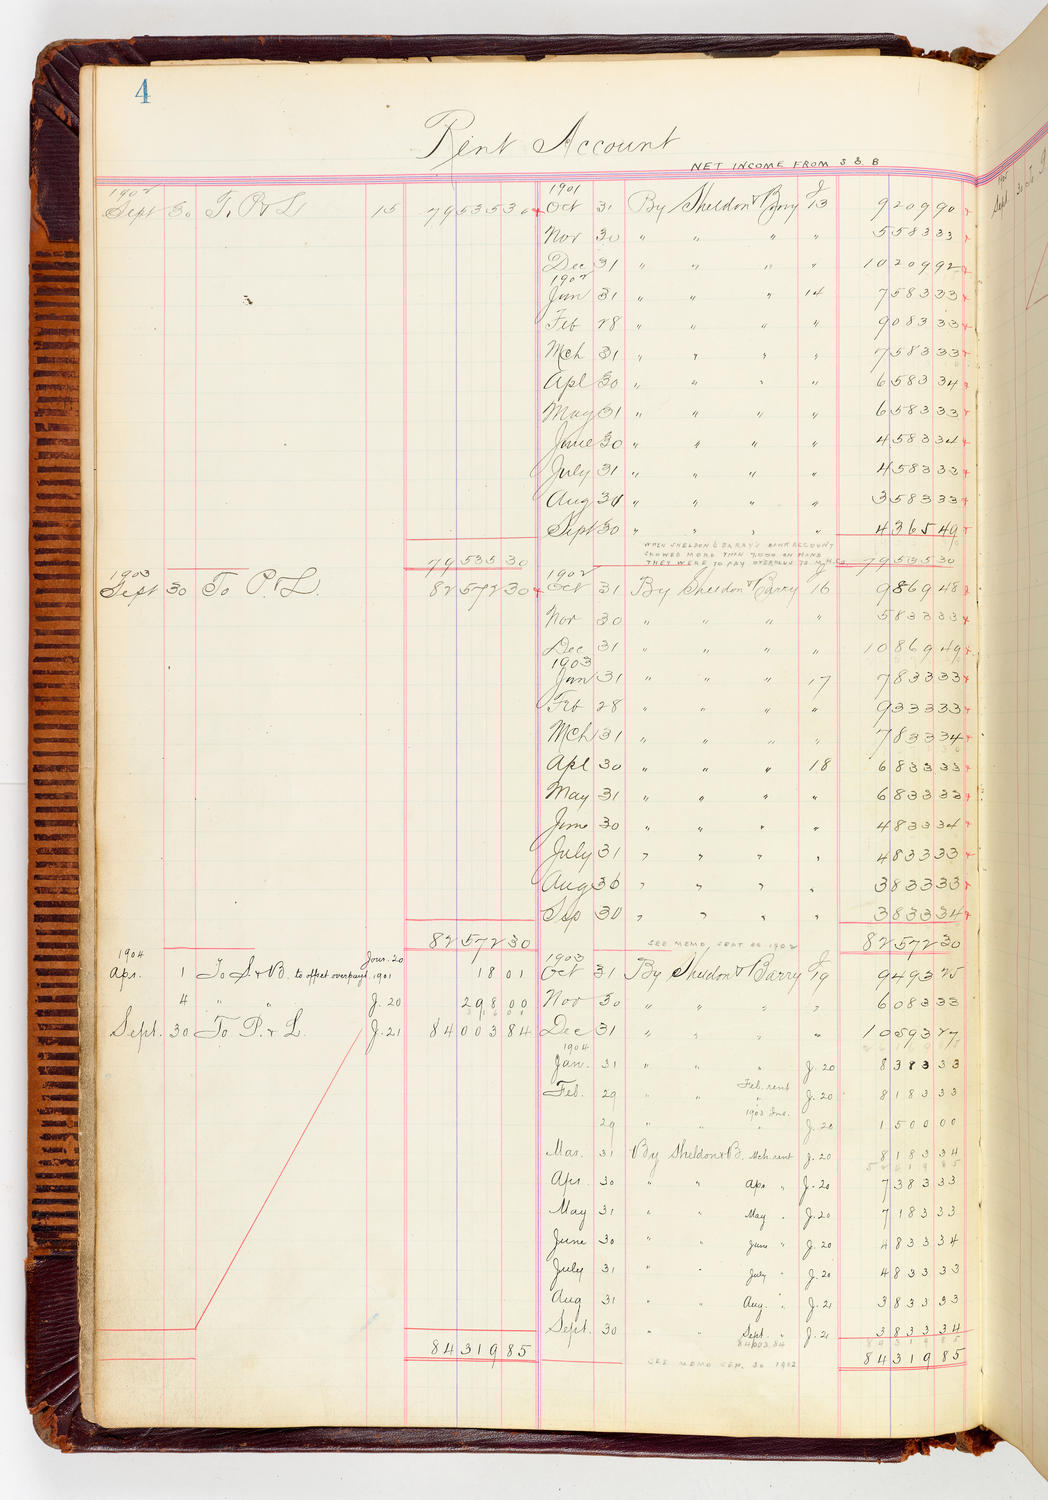 4
Rent Account
NET INCOME FROM S & B
1902
Sept 30 To P & L 15 79535 30
1901
Oct 31 By Sheldon & Barry J 13 9209 90
Nov 30 " " " " 5583 33
Dec 31 " " " " 10209 92
1902
Jan 31 " " " 14 7583 33
Feb 28 " " " " 9083 33
Mch 31 " " " " 7583 33
Apl 30 " " " " 6583 34
May 31 " " " " 6583 33
June 30 " " " " 4583 34
July 31 " " " " 4583 33
Aug 31 " " " " 3583 33
Sept 30 " " " " 4365 49
WHEN SHELDON & BARRY'S BANK ACCOUNT
SHOWED MORE THAN 7,000 ON HAND
THEY WERE TO PAY OVERPLUS TO
79535 30 79535 30
1903
Sept 30 To P. & L. 82572 30
1902
Oct 31 By Sheldon & Barry J 16 9869 48
Nov 30 " " " " 5833 33
Dec 31 " " " " 10869 49
1903
Jan 31 " " " 17 7833 33
Feb 28 " " " " 9333 33
Mch 31 " " " " 7833 34
Apl 30 " " " 18 6833 33
May 31 " " " " 6833 33
June 30 " " " " 4833 34
July 31 " " " " 4833 33
Aug 30 " " " " 3833 33
Sep 30 " " " " 3833 34
82572 30 82572 30
SEE MEMO, SEPT 30 1902
1904
Apr. 1 To S & B. to offset overpayt. 1901 Jour. 20 18 01
4 " " J. 20 298 00
Sept. 30 To P. & L. J. 21 84003 84
1903
Oct 31 By Sheldon & Barry J 19 9493 25
Nov 30 " " " " 6083 33
Dec 31 " " " " 10593 27
1904
Jan. 31 " " " J. 20 8383 33
Feb. 29 " " Feb. rent J. 20 8183 33
29 " " 1903 Inc. J. 20 1500 00
Mar. 31 By Sheldon & B. Mch. rent J. 20 8183 34
Apr. 30 " " Apr. " J. 20 7383 33
May 31 " " May " J. 20 7183 33
June 30 " " June " J. 20 4833 34
July 31 " " July " J. 20 4833 33
Aug 31 " " Aug. " J. 21 3833 33
Sept. 30 " " Sept. " J. 21 3833 34
84003.84
84319 85 84319 85
SEE MEMO SEP. 30 1902